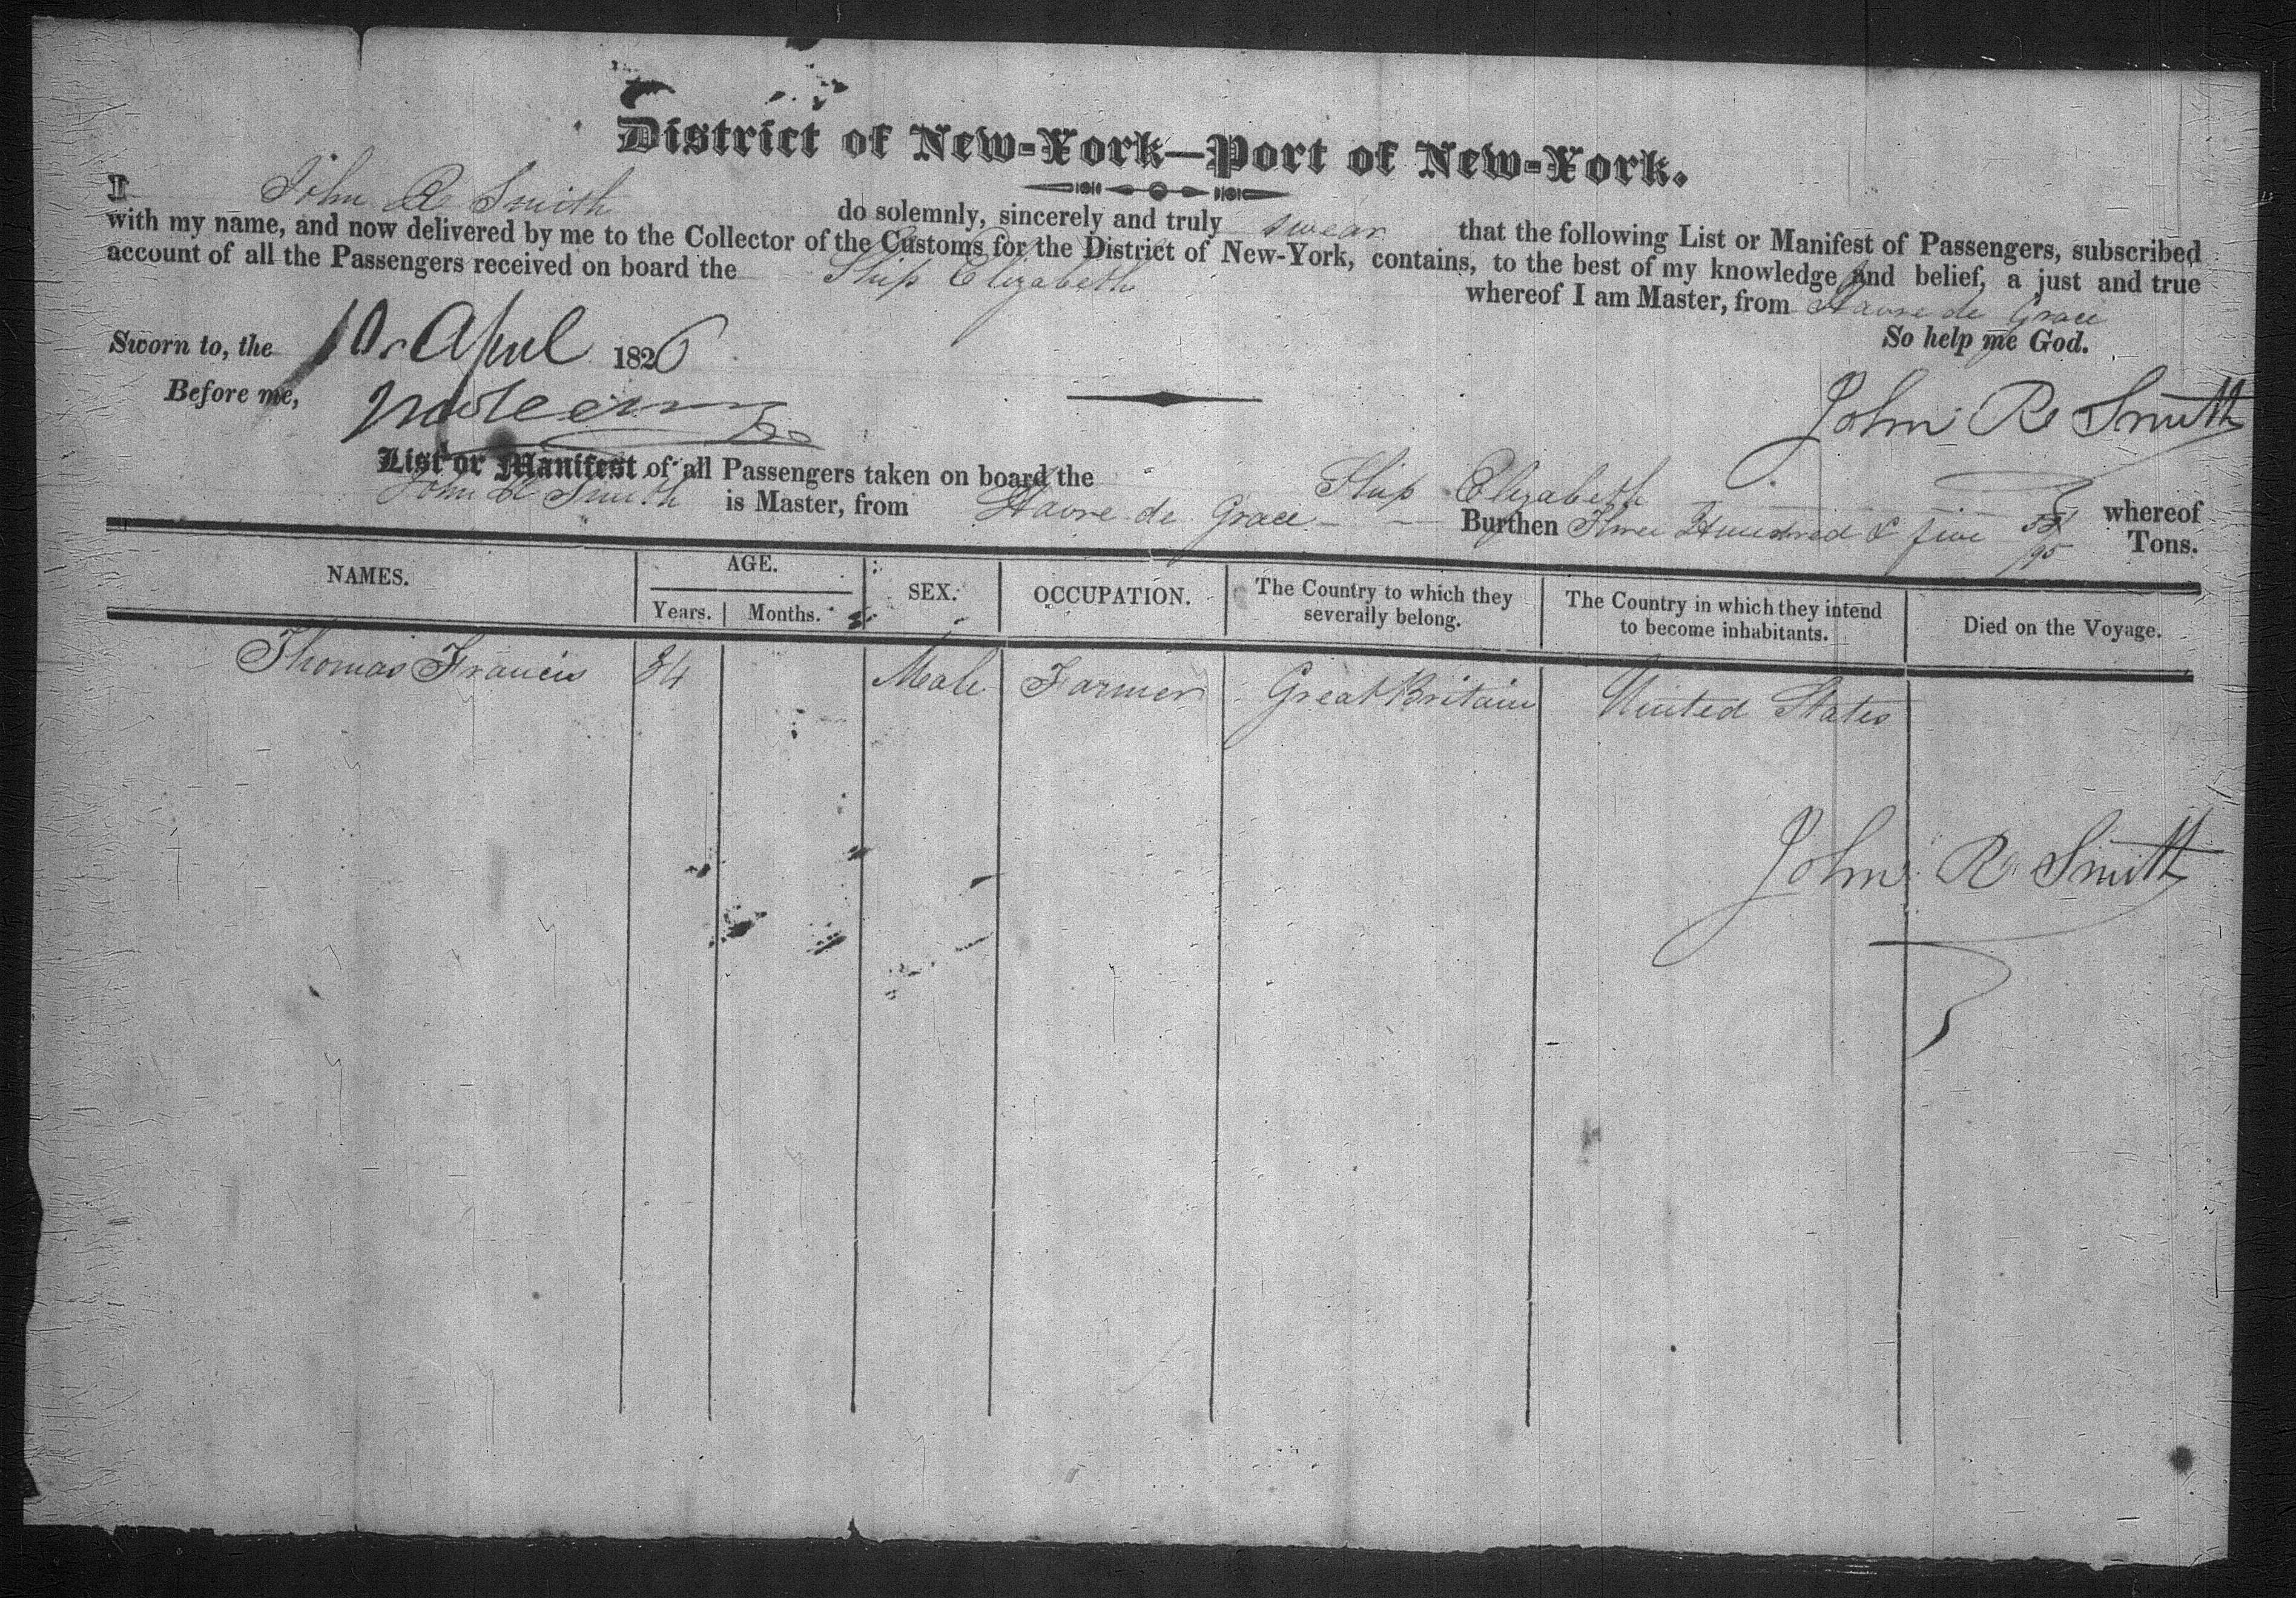 District of New-York—Port of New-York.
I John R Smith do solemnly, sincerely and truly swear that the following List or Manifest of Passengers, subscribed
with my name, and now delivered by me to the Collector of the Customs for the District of New-York, contains, to the best of my knowledge and belief, a just and true
account of all the Passengers received on board the Ship Elizabeth whereof I am Master, from Havre de Grace
So help me God.
Sworn to, the 10 April 1826
Before me,
John R Smith
List or Manifest of all Passengers taken on board the Ship Elizabeth whereof
John R Smith is Master, from Havre de Grace Burthen Three Hundred & five /95 Tons.
NAMES. AGE. SEX. OCCUPATION. The Country to which they severally belong. The Country in which they intend to become inhabitants. Died on the Voyage.
Years. Months.
Thomas Francis 34 Male Farmer Great Britain United States
John R Smith